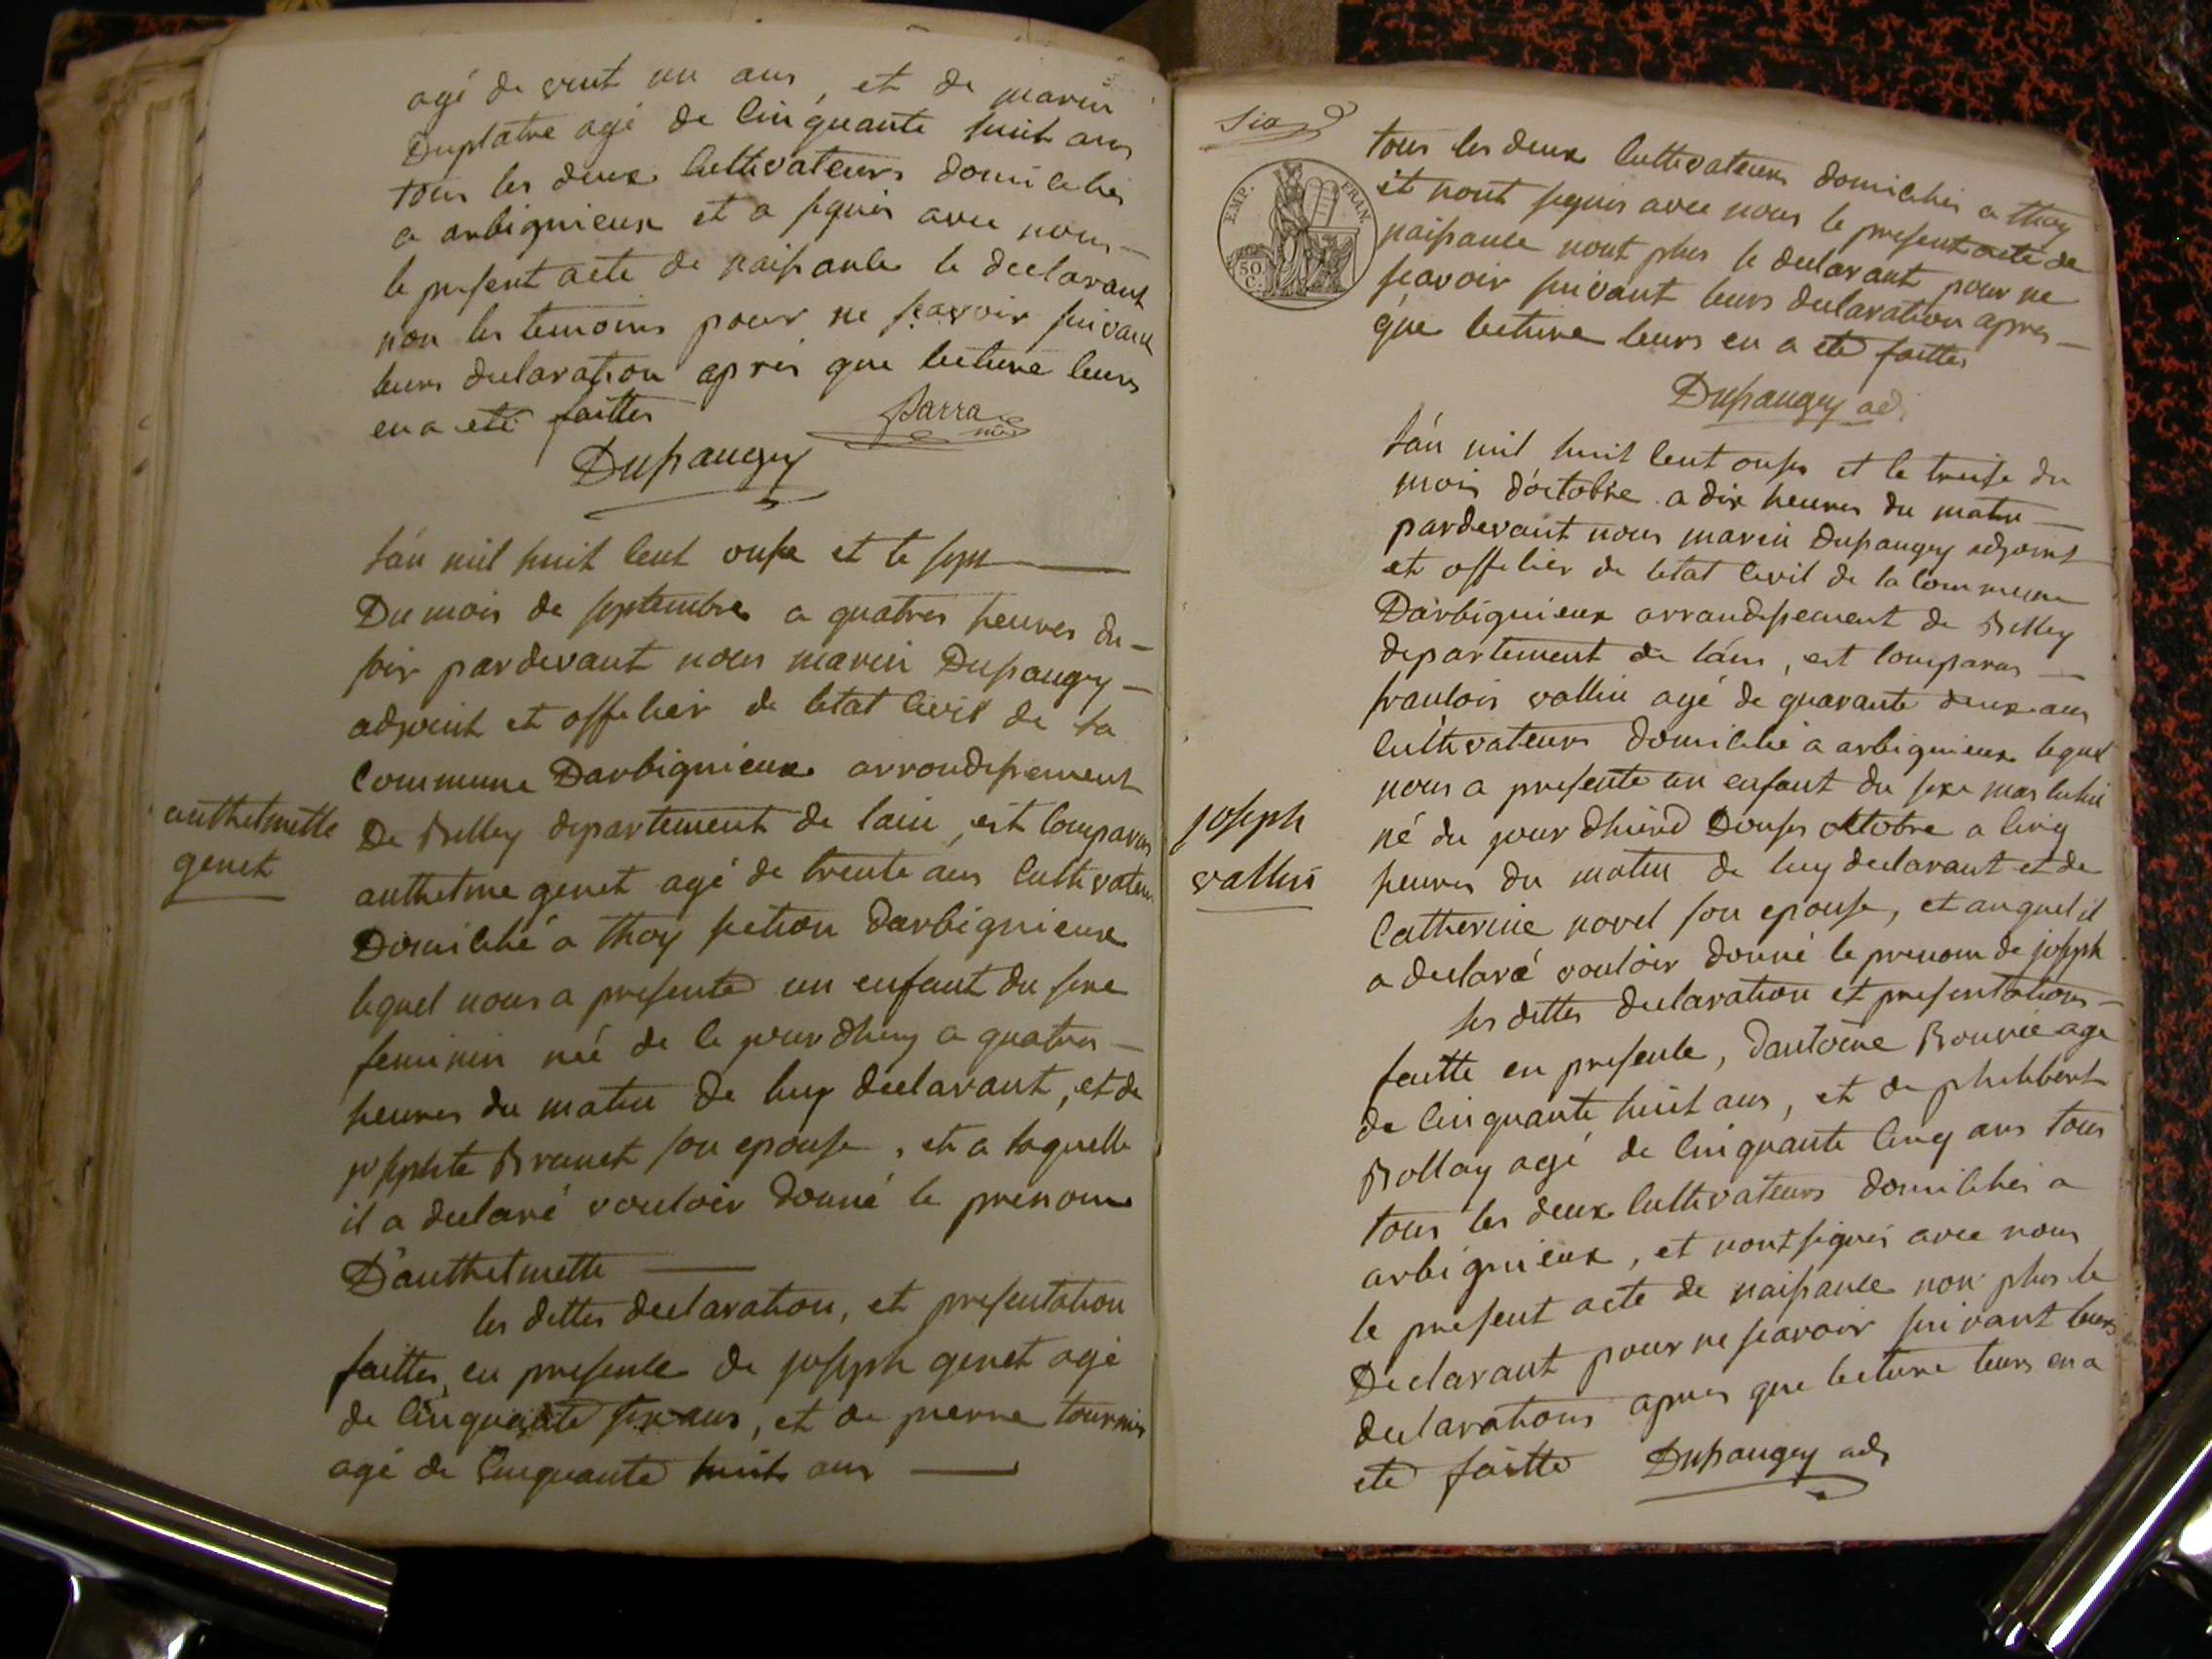 agé de vint un ans, et de marin
Duplatre agé de Cinquante huit ans
tous les deux Cultivateurs domiciliés
a arbignieux et a signés avec nous
le present acte de naissance le declarant
non les temoins pour ne sçavoir suivant
leurs declaration après que lecture leurs
en a eté faittes
Parra
Dupaugey
L'an mil huit Cent onse et le sept
Du mois de septembre a quatres heures du
soir pardevant nous marin Dupaugey
adjoint et officier de letat Civil de la
Commune Darbignieux arrondissement
De Belley departement de lain, est Comparus
anthelme genet agé de trente ans Cultivateur
Domicilié a thoy section Darbignieux
lequel nous a presenté un enfant du sexe
feminin né de ce jour dhuy a quatres
heures du matin de luy declarant, et de
josephte Brunet son epouse, et a laquelle
il a declaré vouloir donné le prenom
D'anthelmette
les dittes declaration, et presentation
faittes, en presence de joseph genet agé
de Cinquante six ans, et de pierre tournier
agé de Cinquante huit ans
anthelmette
genet
Six
EMP. FRAN.
50 C.
tous les deux Cultivateurs domiciliés a thoy
et nont signés avec nous le present acte de
naissance nont plus le declarant pour ne
scavoir suivant leurs declaration apres
que lecture leurs en a eté faittes
Dupaugey adj
L'an mil huit Cent onse et le treise du
mois d'octobre a dix heures du matin
pardevant nous marin Dupaugey adjoint
et officier de letat Civil de la Commune
D'arbignieux arrondissement de Belley
departement de l'ain, est Comparus
francois vallin agé de quarante deux ans
Cultivateurs domicilié a arbignieux lequel
nous a presenté un enfant du sexe masculin
né du jour dhierd Douse octobre a Cinq
heures du matin de luy declarant et de
Catherine novel son epouse, et auquel il
a declaré vouloir donné le prenom de joseph
les dittes declaration et presentations
faitte en presence, d'antoine Bouvié agé
de Cinquante huit ans, et de philibert
Bollay agé de Cinquante Cinq ans tous
tous les deux Cultivateurs domiciliés a
arbignieux, et nont signés avec nous
le present acte de naissance non plus le
Declarant pour ne scavoir suivant leurs
declarations apres que lecture leurs en a
eté faitte Dupaugey adj
joseph
vallin